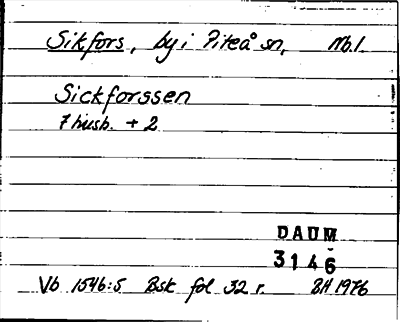 Sikfors, by i Piteå sn, Nbl.
Sickforssen
7 husb. + 2
DAUM
3146
Vb 1546:5 Bsk fol 32 r. BH 1976